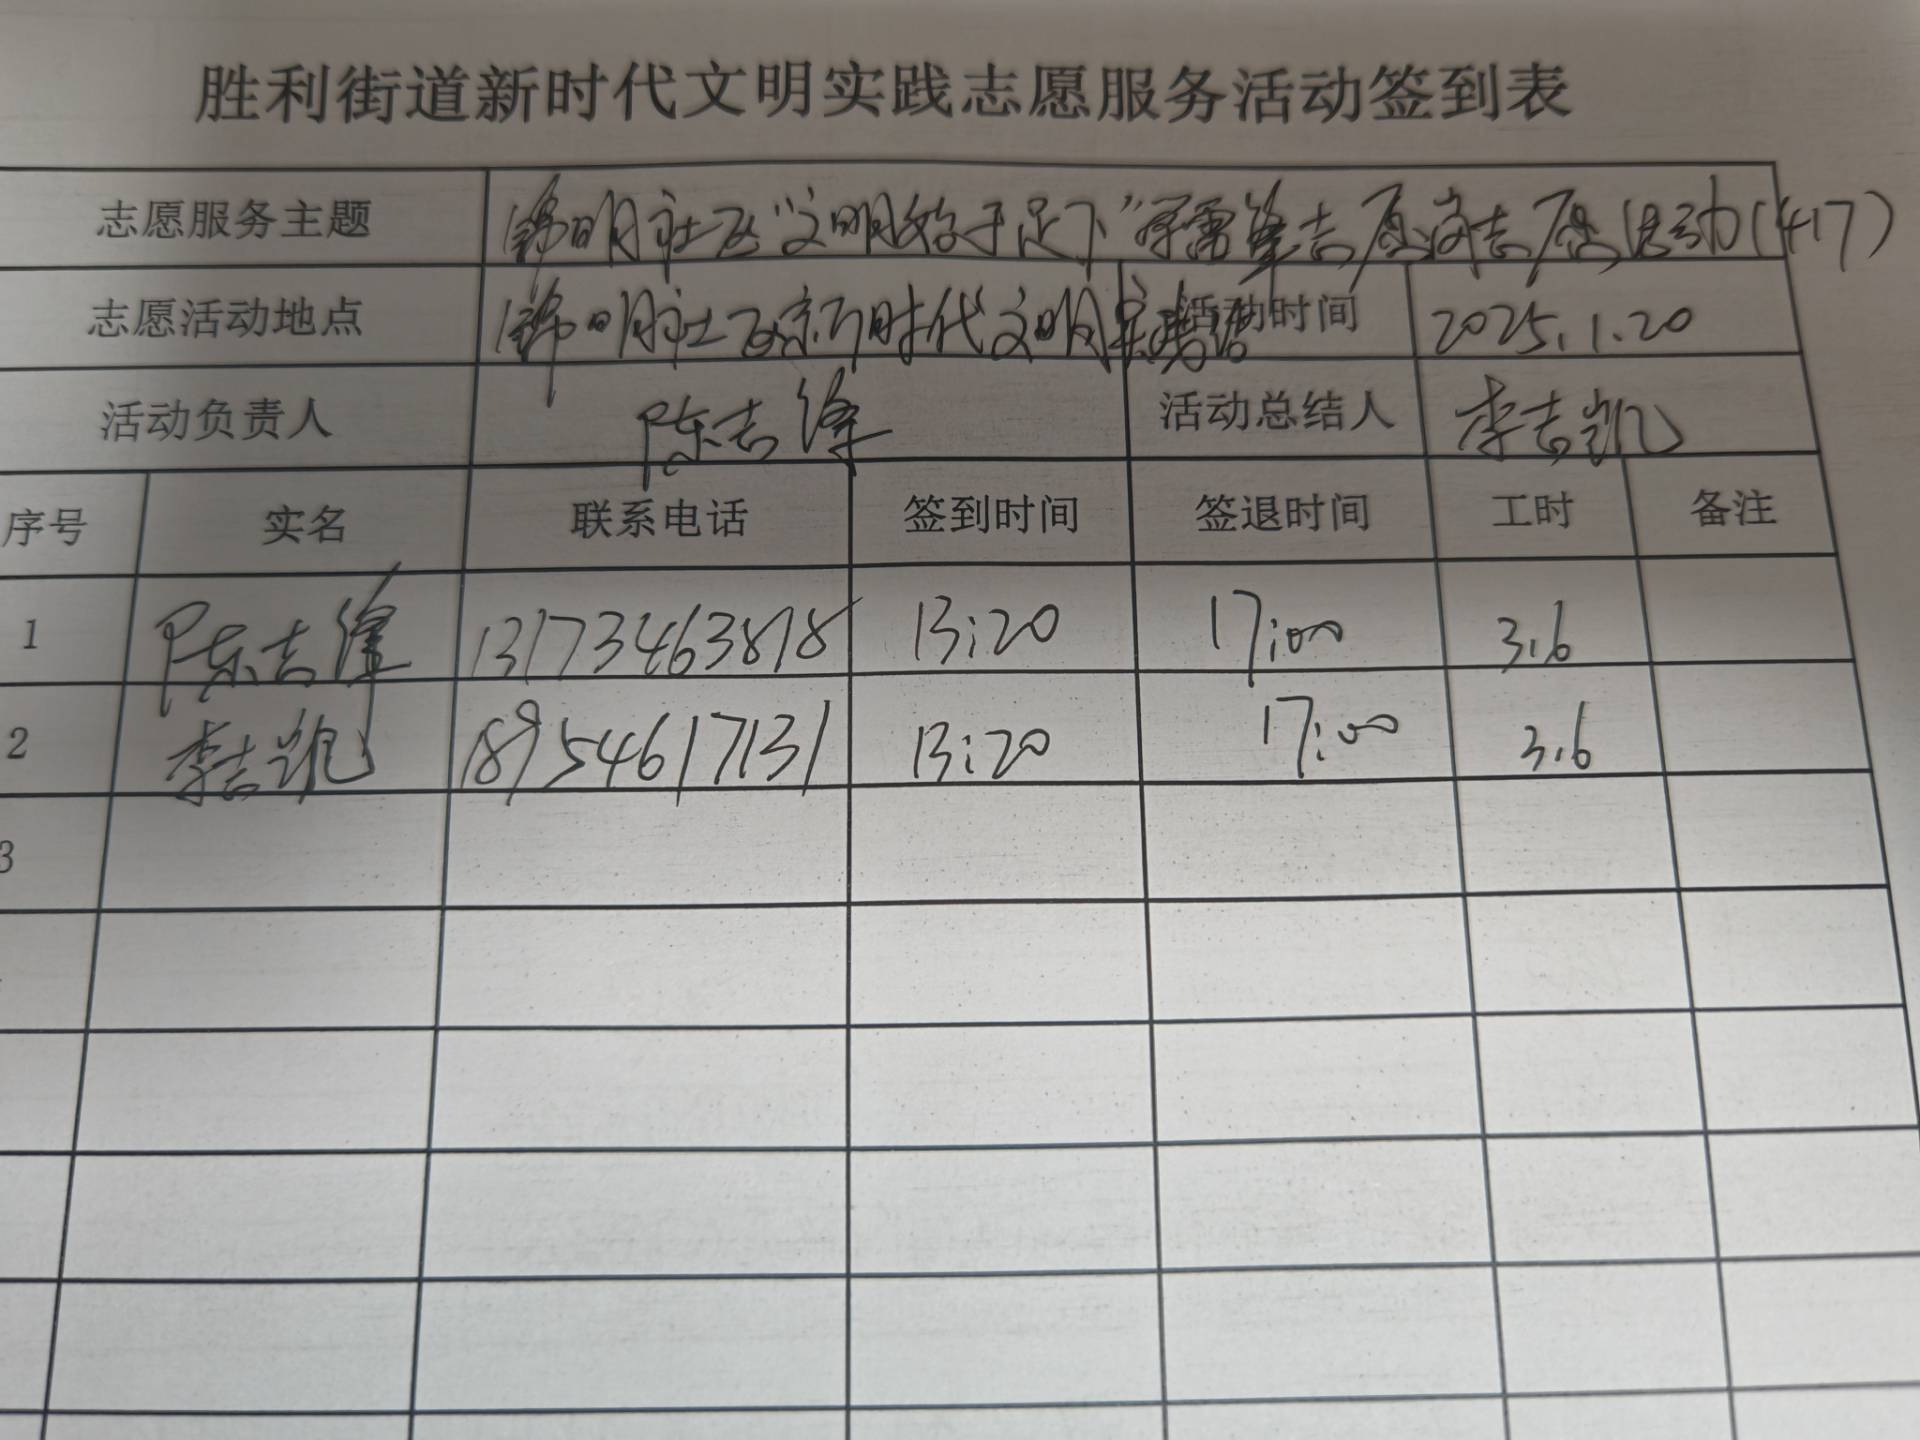 胜利街道新时代文明实践志愿服务活动签到表
志愿服务主题 锦明社区“文明始于足下”学雷锋志愿岗志愿活动(417)
志愿活动地点 锦明社区新时代文明实践站 活动时间 2025.1.20
活动负责人 陈志锋 活动总结人 李志凯
序号 实名 联系电话 签到时间 签退时间 工时 备注
1 陈志锋 13173463878 13:20 17:00 3.6
2 李志凯 18954617131 13:20 17:00 3.6
3